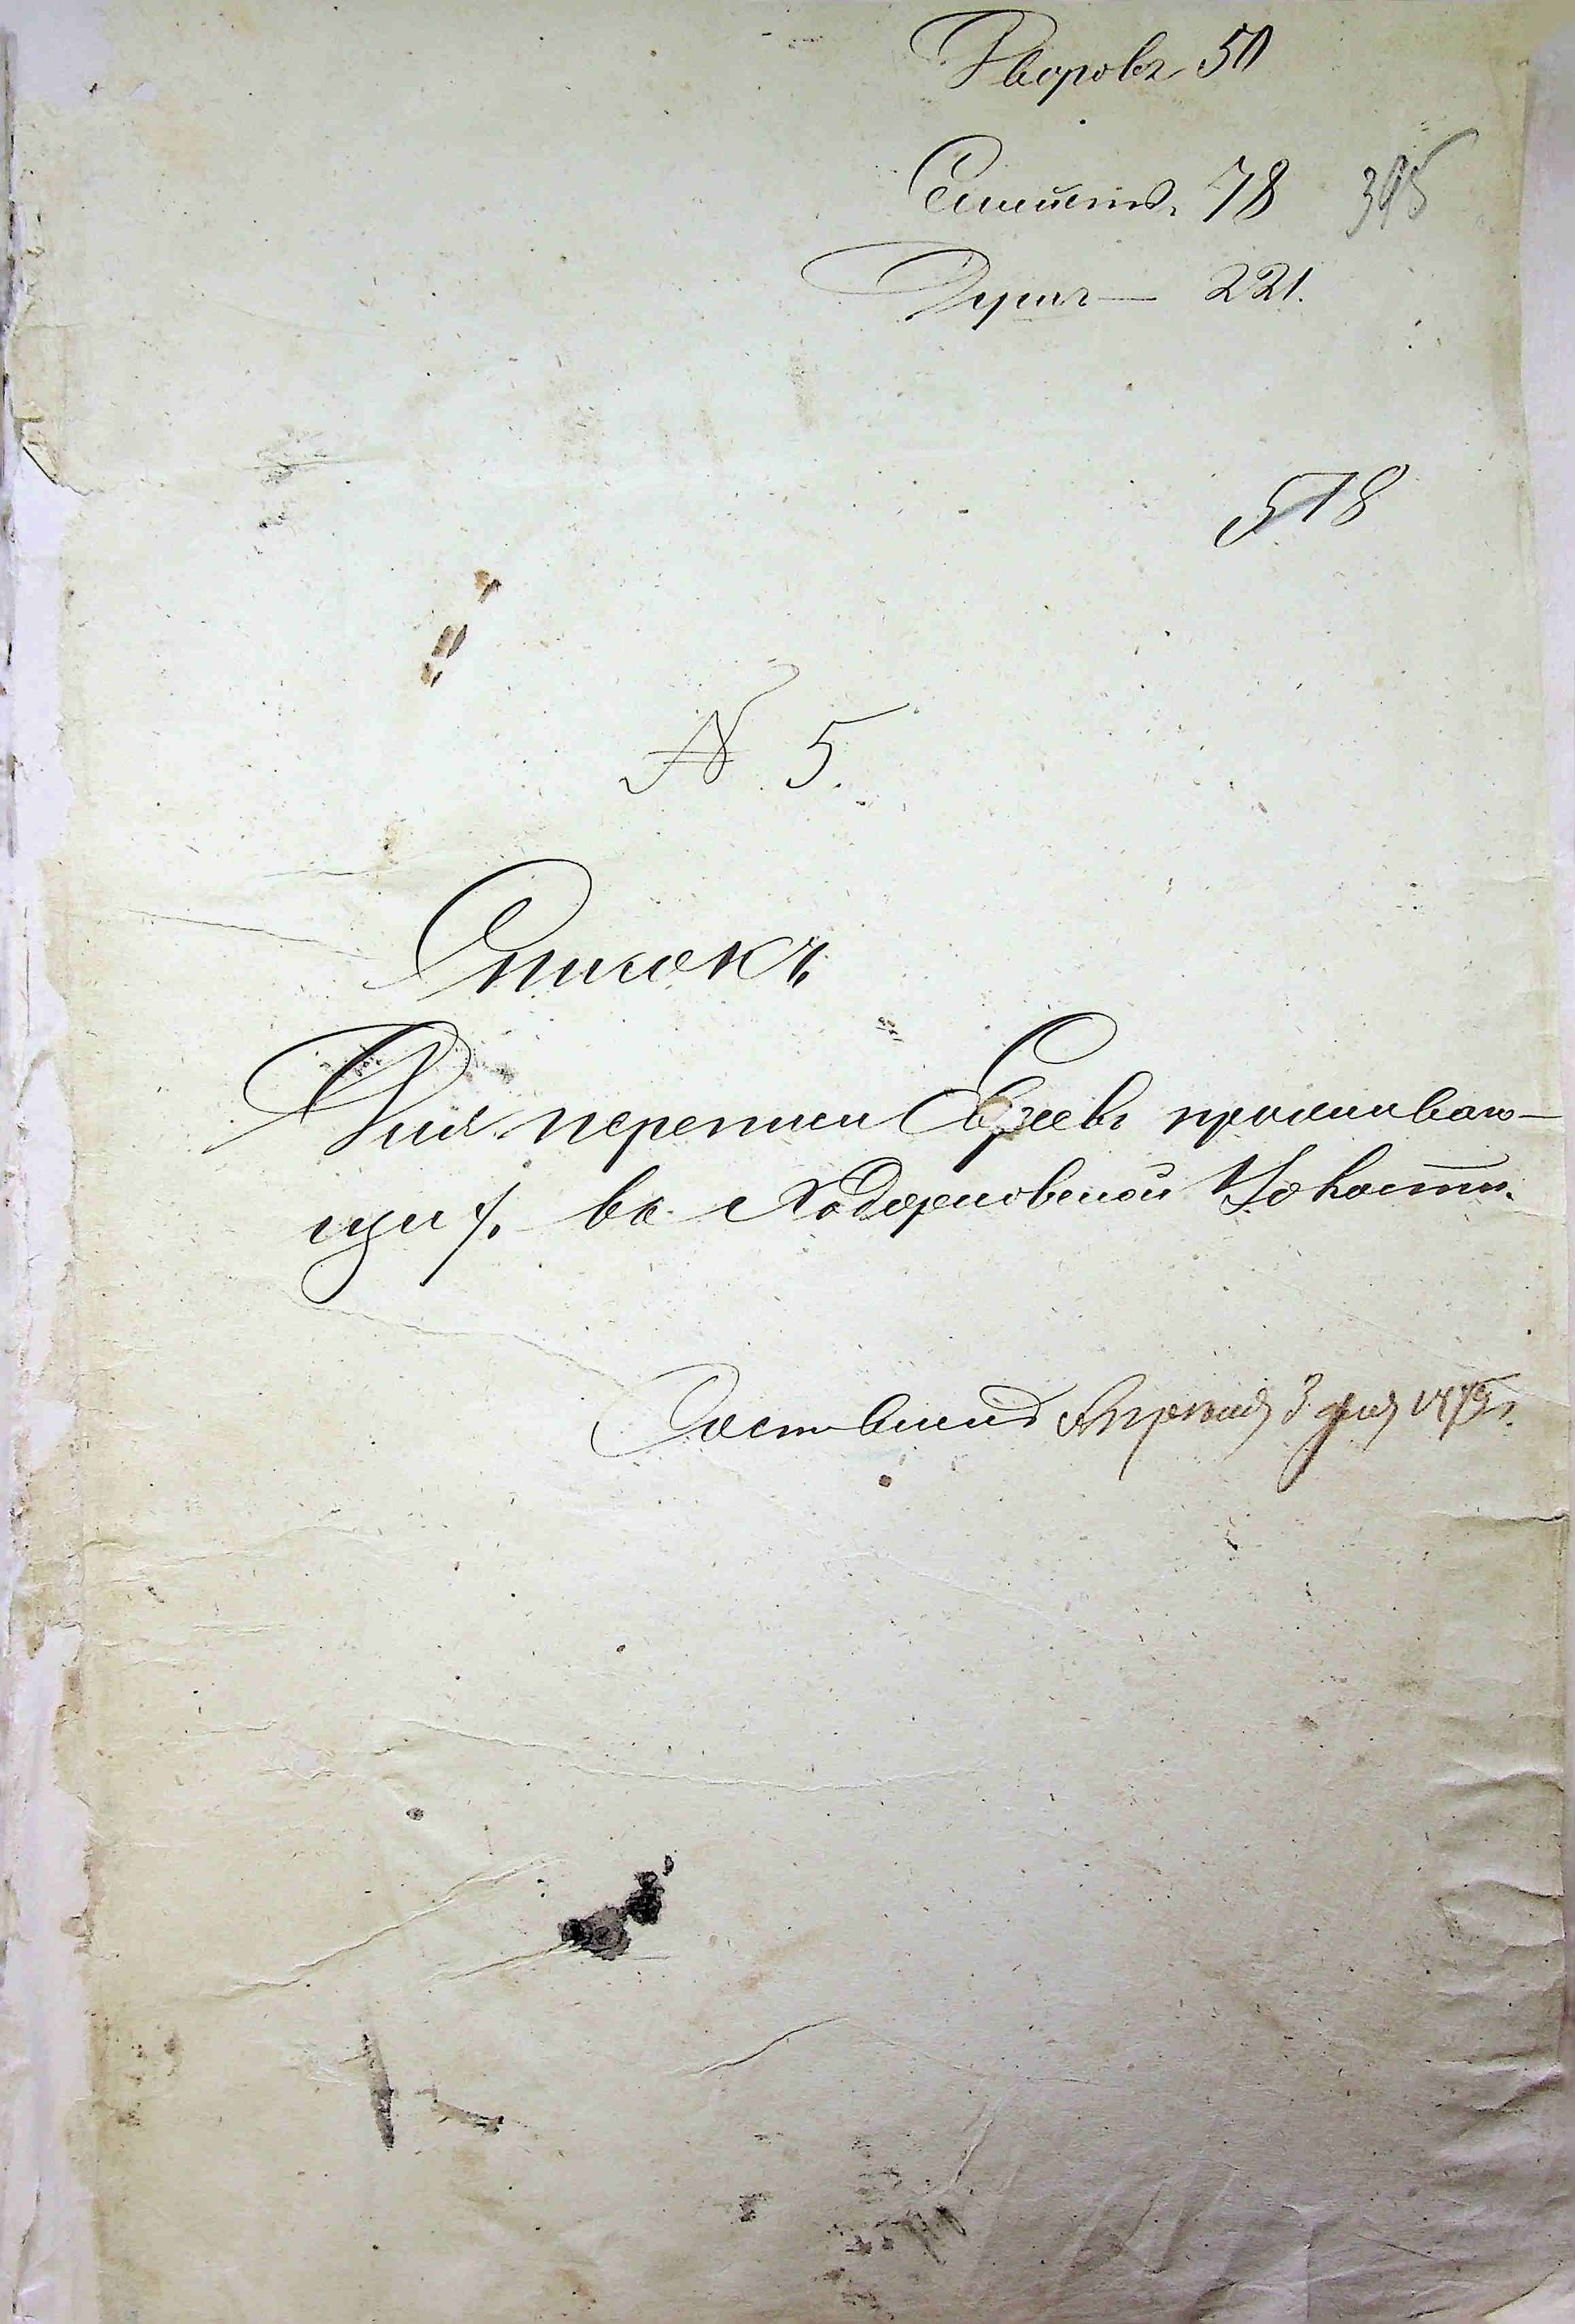 Дворовъ 50
Семействъ 78
Душъ — 221.
518
№ 5.
Списокъ
Для переписи Евреевъ проживаю-
щихъ въ Ходорковской Волости.
Составленъ Апрѣля 3 дня 1875 г.